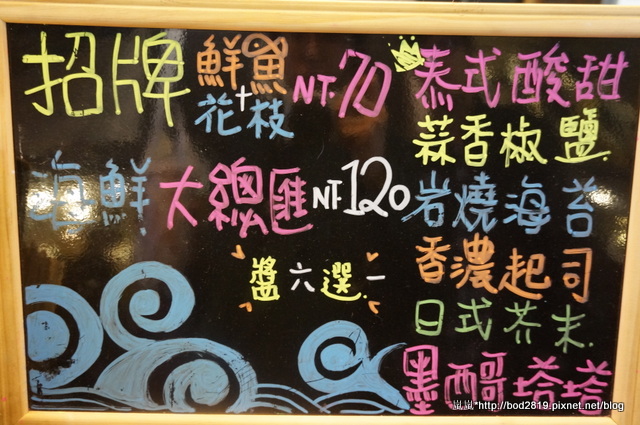 招牌 鮮魚+花枝 NT 70
海鮮 大總匯 NT 120
醬六選一
泰式酸甜
蒜香椒鹽.
岩燒海苔
香濃起司
日式芥末.
墨西哥塔塔
"嵐嵐"http://bod2819.pixnet.net/blog